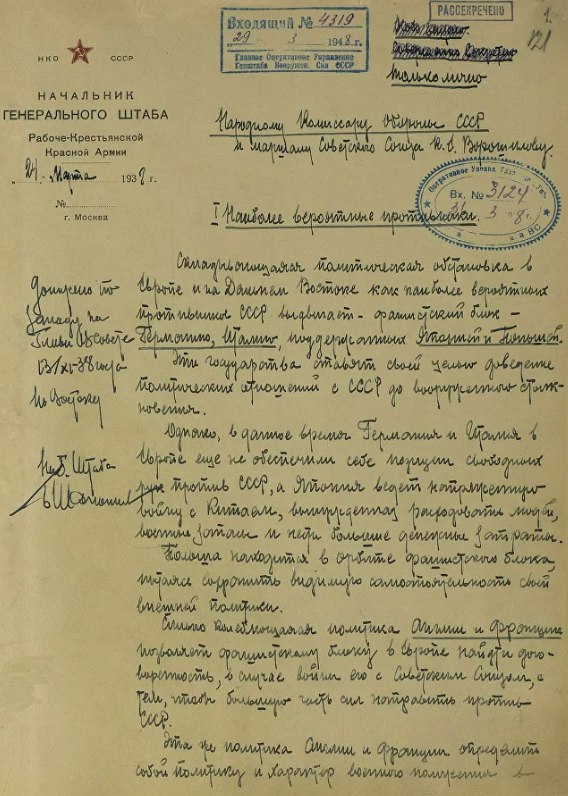 РАССЕКРЕЧЕНО
121
Входящий № 4319
"29" 3 1948 г.
Главное Оперативное Управление
Генштаба Вооружен. Сил СССР
только лично
НКО СССР
НАЧАЛЬНИК
ГЕНЕРАЛЬНОГО ШТАБА
Рабоче-Крестьянской
Красной Армии
"24" марта 1938 г.
№
г. Москва
Народному Комиссару обороны СССР
маршалу Советского Союза К. Е. Ворошилову.
Вх. № 3124
I Наиболее вероятные противники.
Складывающаяся политическая обстановка в
Европе и на Дальнем Востоке как наиболее вероятных
противников СССР выдвигает - фашистский блок -
Германию, Италию, поддержанных Японией и Польшей.
Эти государства ставят своей целью доведение
политических отношений с СССР до вооруженного столк-
новения.
Однако, в данное время Германия и Италия в
Европе еще не обеспечили себе позиции свободных
рук против СССР, а Япония ведет напряженную
войну с Китаем, вынужденная расходовать людей,
военные запасы и нести большие денежные затраты.
Польша находится в орбите фашистского блока,
пытаясь сохранить видимую самостоятельность своей
внешней политики.
Сильно колеблющаяся политика Англии и Франции
позволяет фашистскому блоку в Европе найти дого-
воренность, в случае войны его с Советским Союзом, с
тем, чтобы большую часть сил направить против
СССР.
Эта же политика Англии и Франции определит
собой политику и характер военного положения в
Доложено по
Западу на
Главн Военсовете
по Востоку
Нач. Штаба